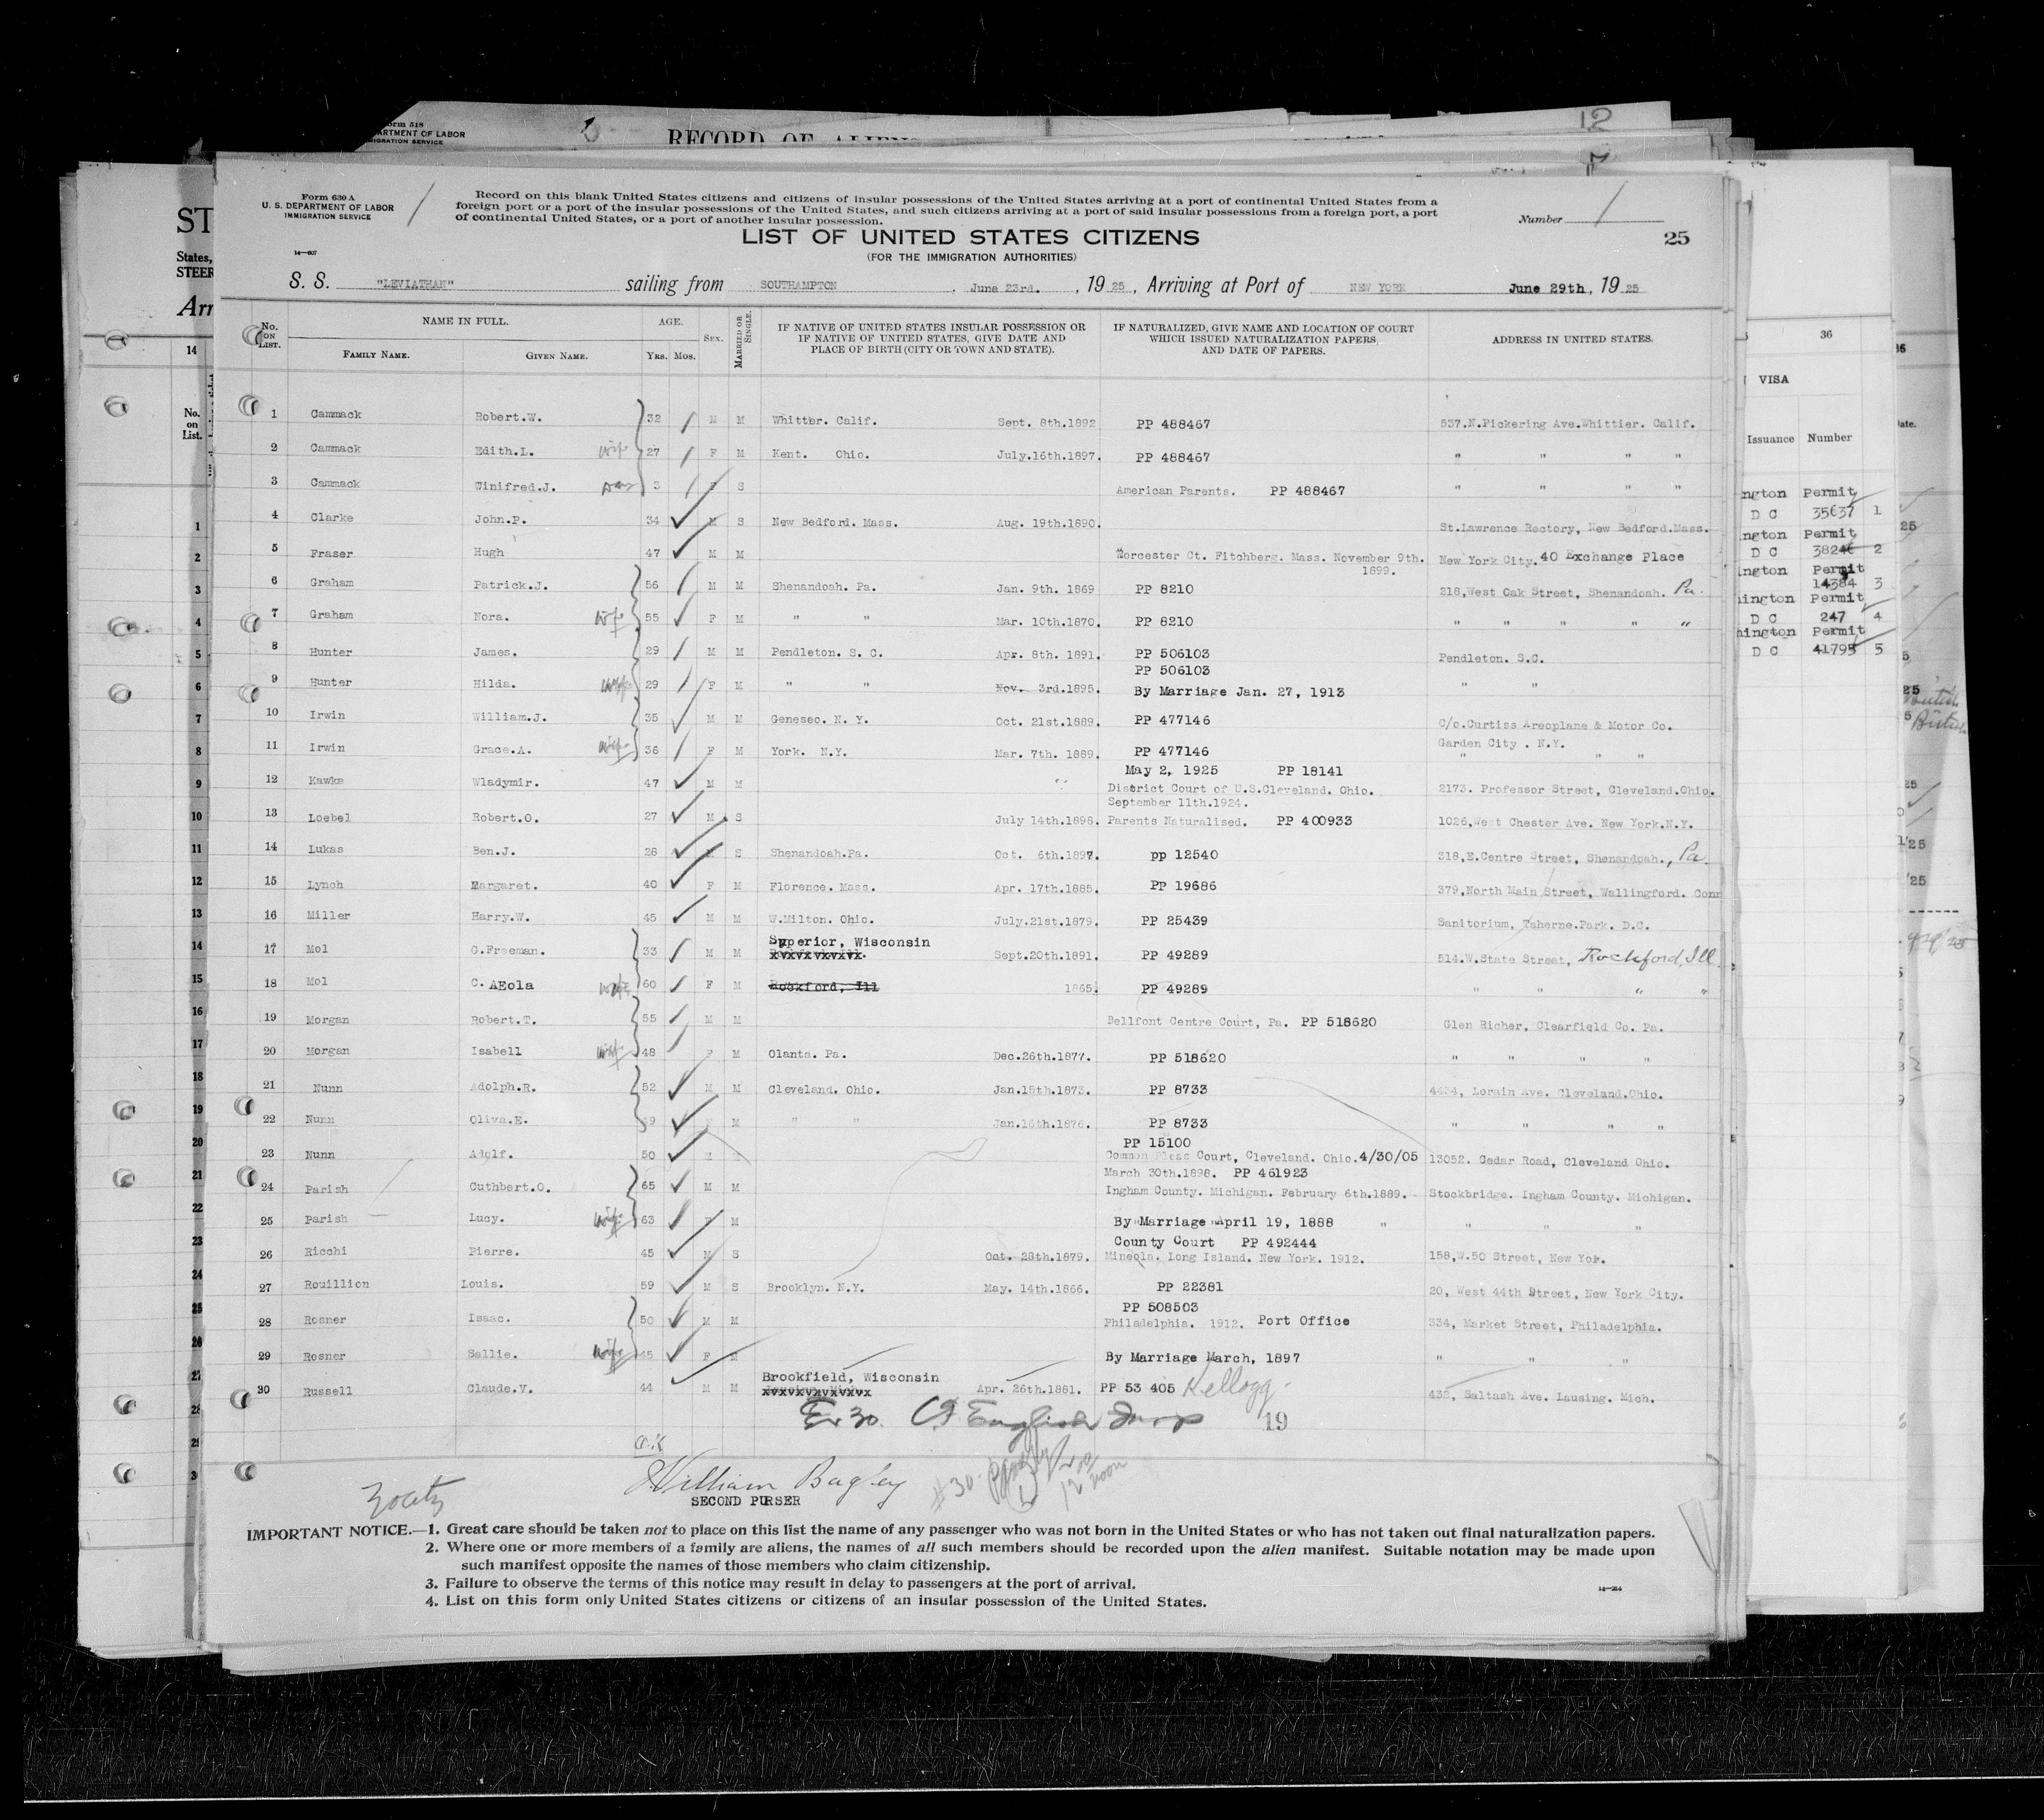 Form 518
DEPARTMENT OF LABOR
IMMIGRATION SERVICE
RECORD OF ALIENS
12
Form 630 A
U. S. DEPARTMENT OF LABOR
IMMIGRATION SERVICE
Record on this blank United States citizens and citizens of insular possessions of the United States arriving at a port of continental United States from a
foreign port or a port of the insular possessions of the United States, and such citizens arriving at a port of said insular possessions from a foreign port, a port
of continental United States, or a port of another insular possession.
Number 1
25
LIST OF UNITED STATES CITIZENS
(FOR THE IMMIGRATION AUTHORITIES)
14—607
S. S. "LEVIATHAN" sailing from SOUTHAMPTON, June 23rd., 1925, Arriving at Port of NEW YORK June 29th, 1925
No. ON LIST. NAME IN FULL. FAMILY NAME. GIVEN NAME. AGE. YRS. MOS. SEX. MARRIED OR SINGLE. IF NATIVE OF UNITED STATES INSULAR POSSESSION OR IF NATIVE OF UNITED STATES, GIVE DATE AND PLACE OF BIRTH (CITY OR TOWN AND STATE). IF NATURALIZED, GIVE NAME AND LOCATION OF COURT WHICH ISSUED NATURALIZATION PAPERS, AND DATE OF PAPERS. ADDRESS IN UNITED STATES.
1 Cammack Robert.W. 32 M M Whitter. Calif. Sept. 8th.1892 PP 488467 537.N.Pickering Ave.Whittier. Calif.
2 Cammack Edith.L. wife 27 F M Kent. Ohio. July.16th.1897. PP 488467 " " " "
3 Cammack Winifred.J. Dau 3 F S American Parents. PP 488467 " " " "
4 Clarke John.P. 34 M S New Bedford. Mass. Aug. 19th.1890. St.Lawrence Rectory, New Bedford.Mass.
5 Fraser Hugh 47 M M Worcester Ct. Fitchberg. Mass. November 9th. 1899. New York City. 40 Exchange Place
6 Graham Patrick.J. 56 M M Shenandoah. Pa. Jan. 9th. 1869 PP 8210 218,West Oak Street, Shenandoah. Pa.
7 Graham Nora. wife 55 F M " " Mar. 10th.1870. PP 8210 " " " " "
8 Hunter James. 29 M M Pendleton. S. C. Apr. 8th. 1891. PP 506103 Pendleton. S.C.
9 Hunter Hilda. wife 29 F M " " Nov. 3rd.1895. PP 506103 By Marriage Jan. 27, 1913 " "
10 Irwin William.J. 35 M M Geneseo. N. Y. Oct. 21st.1889. PP 477146 C/o.Curtiss Areoplane & Motor Co.
Garden City . N.Y.
11 Irwin Grace.A. wife 36 F M York. N.Y. Mar. 7th. 1889. PP 477146 " " "
12 Kawka Wladymir. 47 M M May 2, 1925 PP 18141 District Court of U.S.Cleveland. Ohio. September 11th.1924. 2173. Professor Street, Cleveland.Ohio.
13 Loebel Robert.O. 27 M S July 14th.1898. Parents Naturalised. PP 400933 1026,West Chester Ave. New York.N.Y.
14 Lukas Ben.J. 28 M S Shenandoah.Pa. Oct. 6th.1897. pp 12540 318,E.Centre Street, Shenandoah., Pa.
15 Lynch Margaret. 40 F M Florence. Mass. Apr. 17th.1885. PP 19686 379,North Main Street, Wallingford. Conn
16 Miller Harry.W. 45 M M W.Milton. Ohio. July.21st.1879. PP 25439 Sanitorium, Taherne.Park. D.C.
17 Mol G.Freeman. 33 M M Superior, Wisconsin Sept.20th.1891. PP 49289 514.W.State Street, Rockford, Ill
18 Mol C. AEola wife 60 F M Rockford, Ill 1865. PP 49289 " " " "
19 Morgan Robert.T. 55 M M Bellfont Centre Court, Pa. PP 518620 Glen Richer, Clearfield Co. Pa.
20 Morgan Isabell wife 48 F M Olanta. Pa. Dec.26th.1877. PP 518620 " " " "
21 Nunn Adolph.R. 52 M M Cleveland. Ohio. Jan.15th.1873. PP 8733 4434, Lorain Ave. Cleveland.Ohio.
22 Nunn Oliva.E. 49 M " " Jan.16th.1876. PP 8733 " " " "
23 Nunn Adolf. 50 M PP 15100 Common Pleas Court, Cleveland. Ohio. 4/30/05 March 30th.1898. 13052. Cedar Road, Cleveland Ohio.
24 Parish Cuthbert.O. 65 M M PP 461923 Ingham County. Michigan. February 6th.1889. Stockbridge. Ingham County. Michigan.
25 Parish Lucy. wife 63 F M By Marriage April 19, 1888 " " " "
26 Ricchi Pierre. 45 M S Oct. 28th.1879. County Court PP 492444 Mineola. Long Island. New York. 1912. 158,W.50 Street, New Yok.
27 Rouillion Louis. 59 M S Brooklyn. N.Y. May. 14th.1866. PP 22381 20, West 44th Street, New York City.
28 Rosner Isaac. 50 M M PP 508503 Philadelphia. 1912. Port Office 334, Market Street, Philadelphia.
29 Rosner Sallie. wife 45 F M By Marriage March, 1897 " " "
30 Russell Claude.V. 44 M M Brookfield, Wisconsin Apr. 26th.1881. PP 53 405 Kellogg 432, Saltash Ave. Lausing. Mich.
Ex 30. English 19
O.K
William Bagley
SECOND PURSER
#30
12 noon
IMPORTANT NOTICE.—1. Great care should be taken not to place on this list the name of any passenger who was not born in the United States or who has not taken out final naturalization papers.
2. Where one or more members of a family are aliens, the names of all such members should be recorded upon the alien manifest. Suitable notation may be made upon
such manifest opposite the names of those members who claim citizenship.
3. Failure to observe the terms of this notice may result in delay to passengers at the port of arrival.
4. List on this form only United States citizens or citizens of an insular possession of the United States.
36
VISA
Issuance Number
ington Permit
D C 35637 1
ngton Permit
D C 38246 2
ington Permit
14384 3
hington Permit
D C 247 4
hington Permit
D C 41795 5